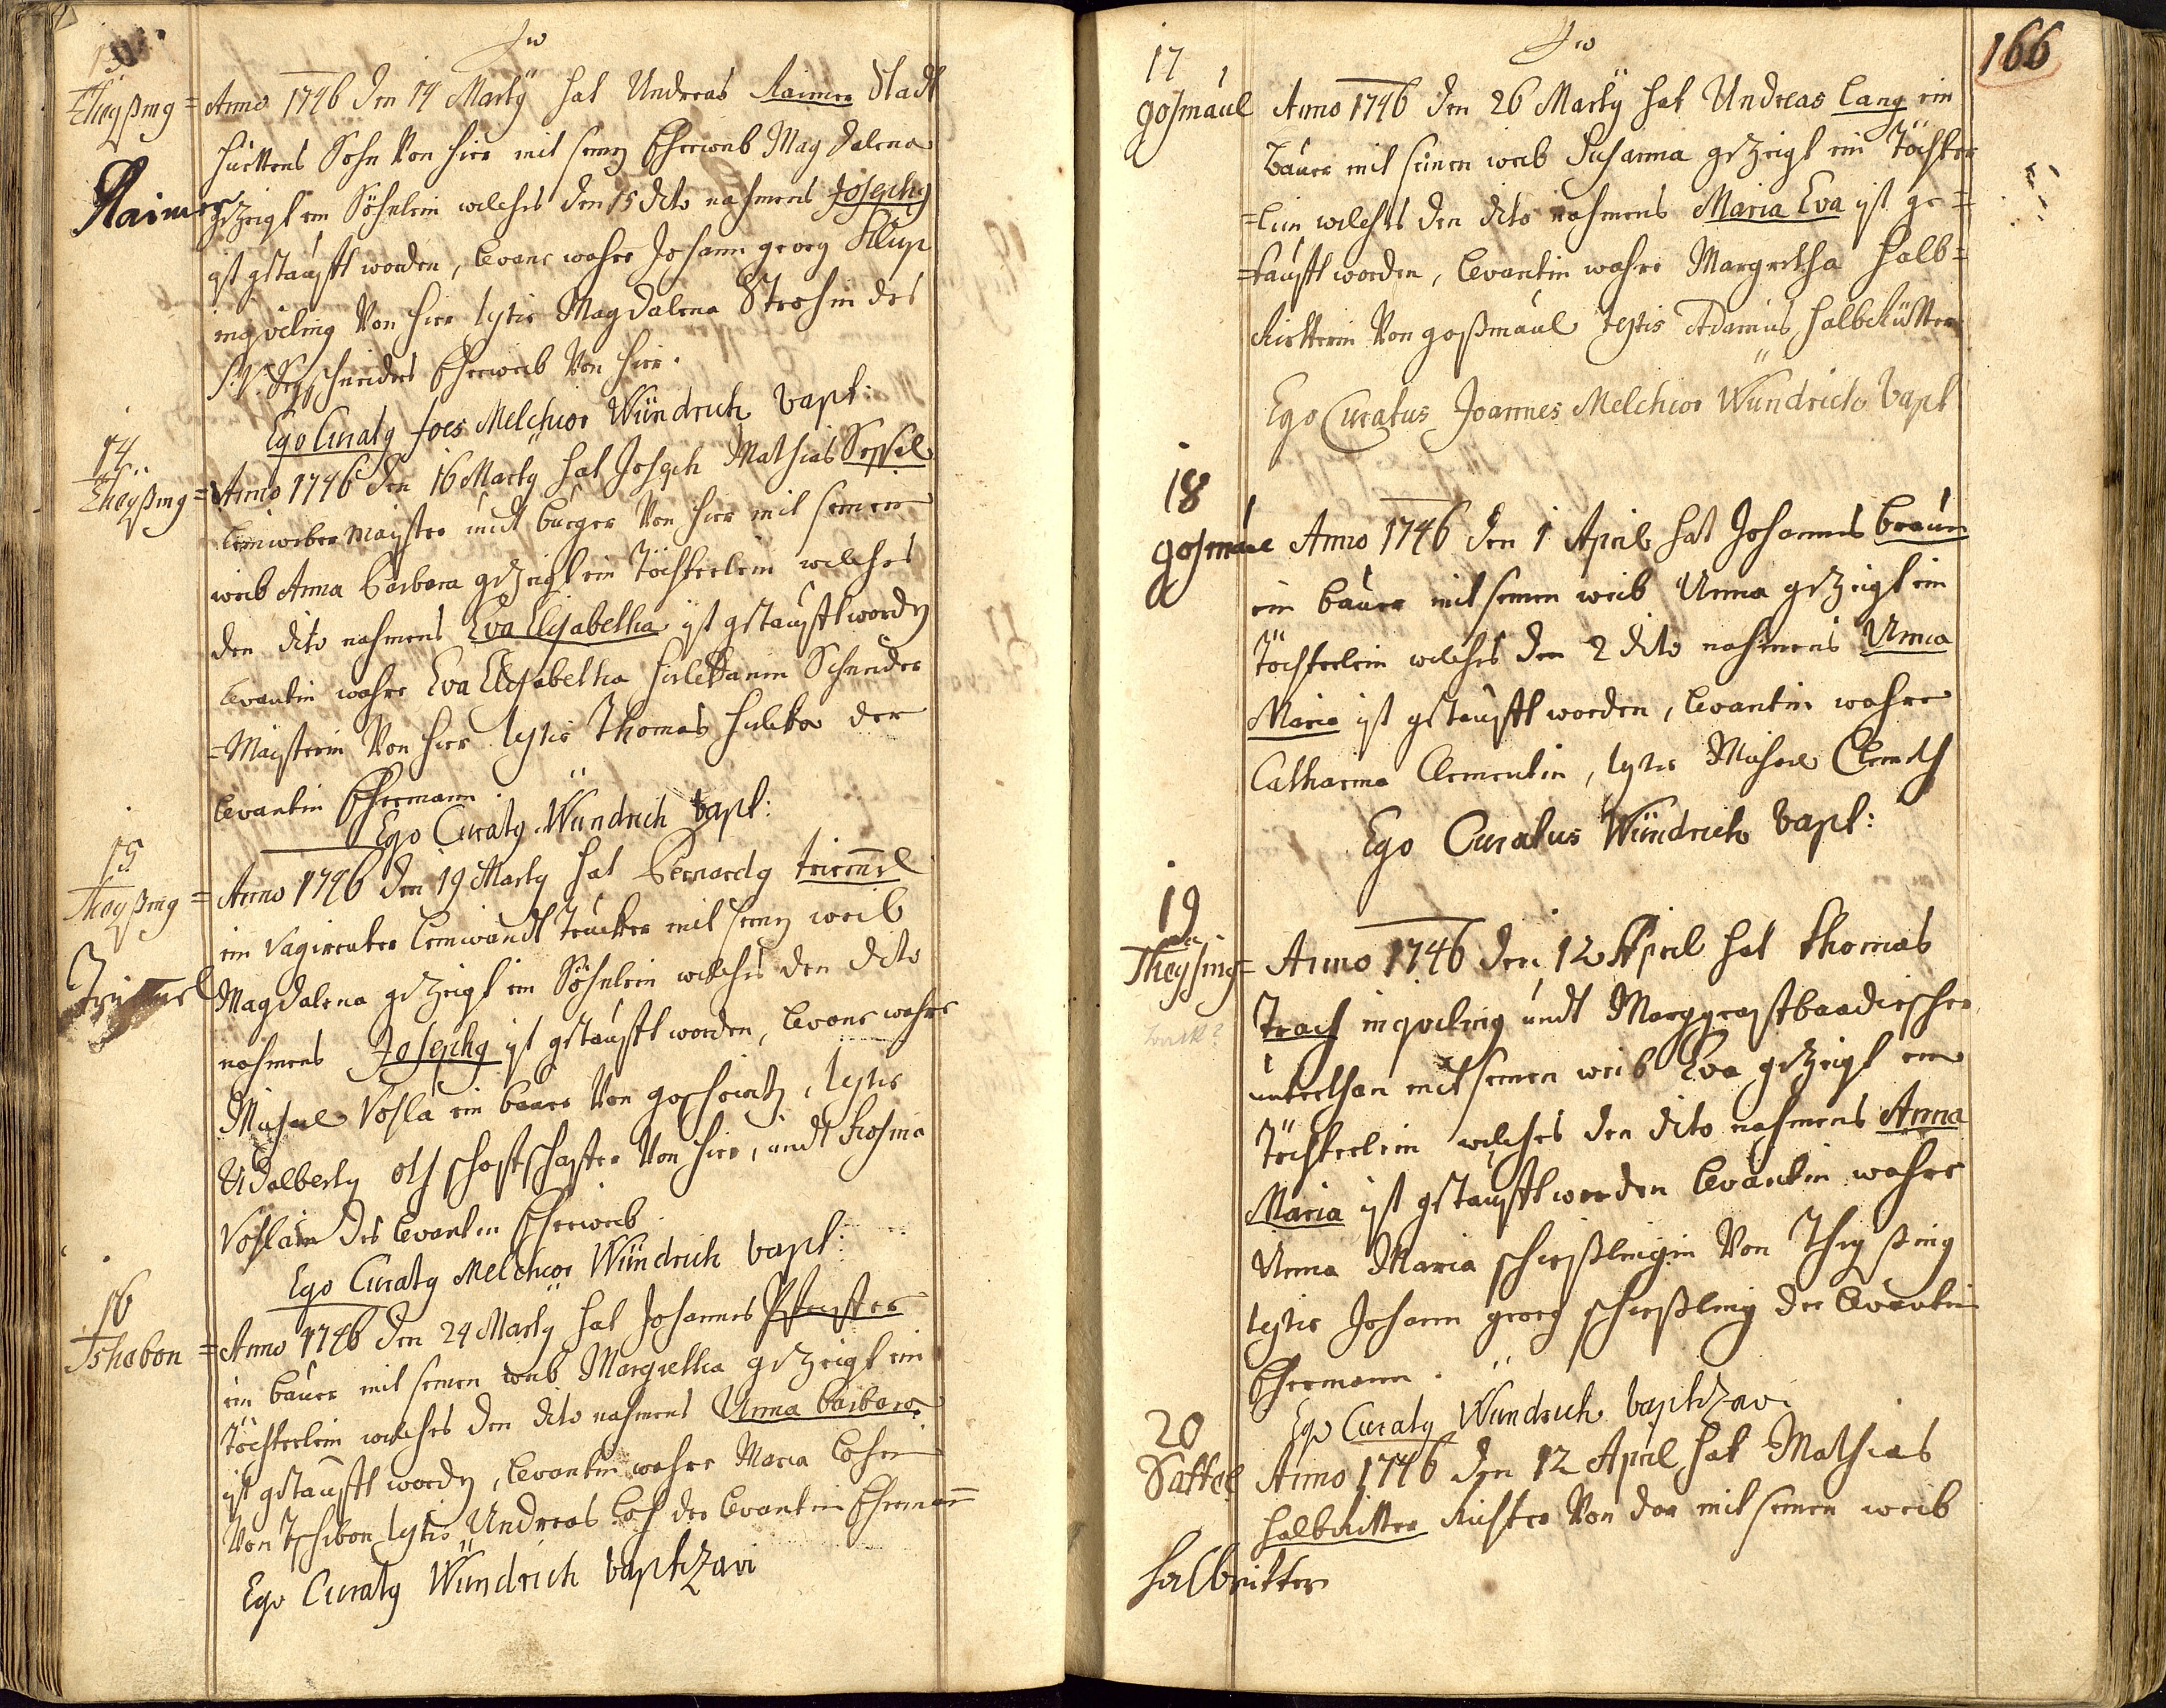 13
Theyßing = Anno 1746 den 14 Marty hat Andreas Raimer Stadt
Huettens Sohn Von hier mit seiny Eheweib Magdalena
Raimer
gezeigt ein Söhnlein welches den 15 dito nahmens Josephy
ist getaufft worden, Levans wahre Johann georg
inqviling Von hier testis Magdalena Strohin des
S:V: schneiders Eheweib Von hier.
Ego Curaty Joes Melchior Wündrich bapt:
14
Theyßing = Anno 1746 den 16 Marty hat Joseph Mathias Sessel
Leinweber Mayster undt burger Von hier mit seinen
weib Anna barbara gezeigt ein Töchterlein welches
den dito nahmens Eva Elisabetha ist getaufft wordy
Levantin wahre Eva Elisabetha Schneider
=Maisterin Von hier testis Thomas der
Levantin Ehemann.
Ego Curaty Wündrich bapt:
15
Theyßing = Anno 1746 den 19 Marty hat Bernardy trieml
ein vagirenter Leinwandt trucker mit seiny weib
Magdalena gezeigt ein Söhnlein welches den dito
nahmens Josephy ist getaufft worden, Levans wahre
Michael Vosla ein bauer Von, testis
Adalberty schaffer Von hier, undt Rosina
Voslain des Levanten Eheweib
Ego Curaty Melchior Wündrich bapt:
16
Tshebon = Anno 1746 den 24 Marty hat Johannes
ein bauer mit seinen weib Margretha gezeigt ein
töchterlein welches den dito nahmens Anna barbara
ist getaufft wordy, Levantin wahre Maria Coshin
Von Tschebon testis Andreas Cosh der Levantin Ehemann
Ego Curaty Wündrich baptizavi
166
17
gosmaul Anno 1746 den 26 Marty hat Andreas Lang ein
bauer mit seinen weib Susanna gezeigt ein Töchter
=lein welches den dito nahmens Maria Eva ist ge=
=taufft worden, Levantin wahre Margretha Halb=
Ritterin Von goßmaul testis Adamus halbRitter
Ego Curatus Joannes Melchior Wündrich bapt
18
gosmaul Anno 1746 den 1 April hat Johannes braun
ein bauer mit seinen weib Anna gezeigt ein
töchterlein welches den 2 dito nahmens Anna
Maria ist getaufft worden, Levantin wahre
Catharina Clementin, testis Michael Clemeth
Ego Curatus Wündrich bapt:
19
Theysing = Anno 1746 den 12 April hat Thomas
Trach inqviling undt Marggraftbaadischer
unterthan mit seinen weib Eva gezeigt ein
Töchterlein welches den dito nahmens Anna
Maria ist getaufft worden Levantin wahre
Anna Maria schießlingin Von Theyßing
testis Johann georg schießling der Levantin
Ehemann.
Ego Curaty Wündrich baptizavi
20
Sattel Anno 1746 den 12 April hat Mathias
halbRitter Richter Von dar mit seinen weib
Halbritter